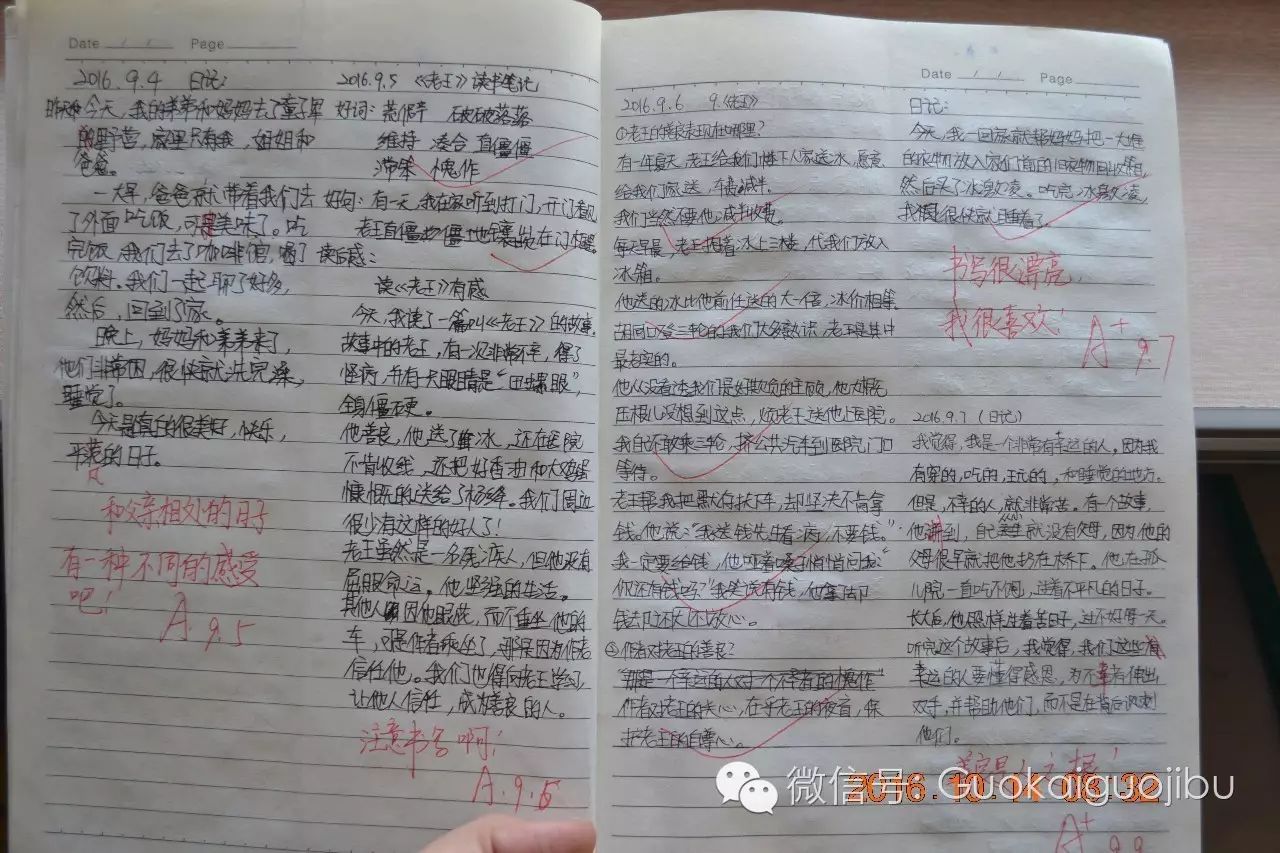 Date / / Page
2016.9.4 日记:
今天,我的弟弟和妈妈去了童子军
的野营,家里只有我,姐姐和
爸爸。
一大早,爸爸就带着我们去
了外面吃饭,可美味了。吃
完饭,我们去了咖啡馆,喝了
饮料。我们一起聊了好多,
然后,回到了家。
晚上,妈妈和弟弟来了,
他们非常困,很快就洗完澡,
睡觉了。
今天是真的很美好,快乐,
平静的日子。
和父亲相处的日子
有一种不同的感受
吧!
A 9.5
2016.9.5 《老王》读书笔记
好词: 荒僻 破破落落
维持 凑合 直僵僵
滞笨 愧怍
好句: 有一天,我在家听到打门,开门看见
老王直僵僵地镶嵌在门框里。
读后感:
读《老王》有感
今天,我读了一篇叫《老王》的故事,
故事中的老王,有一次非常不幸,得了
怪病,并有大眼睛是“田螺眼”,
全身僵硬。
他善良,他送了冰,还在医院
不肯收钱,还把好香油和大鸡蛋
慷慨的送给了杨绛。我们周边
很少有这样的好人了!
老王虽然是一名残疾人,但他没有
屈服命运。他坚强的生活。
其他人因他眼疾,而不乘坐他的
车,可是作者乘坐了,那是因为作者
信任他。我们也得向老王学习,
让他人信任,成为善良的人。
注意书名啊!
A.9.6
2016.9.6 9.《老王》
①老王的善良表现在哪里?
有一年夏天,老王给我们楼下人家送冰,愿意
给我们家送,车费减半。
我们当然不要他减半收费。
每天早晨,老王抱着冰上三楼,代我们放入
冰箱。
他送的冰比他前任送的大一倍,冰价相等。
胡同口登三轮的我们大多熟识,老王是其中
最老实的。
他从没看透我们是好欺负的主顾,他大概
压根儿没想到这点,烦老王送他上医院。
我自己不敢乘三轮,挤公共汽车到医院门口
等待。
老王帮我把默存扶下车,却坚决不肯拿
钱。他说:“我送钱先生看病,不要钱。”
我一定要给钱,他哑着嗓子悄悄问我:“
你还有钱吗?”我笑说有钱,他拿了钱却
还不大放心。
②作者对老王的善良?
“那是一个幸运的人对一个不幸者的愧怍”
作者对老王的关心,在乎老王的夜盲,保
护老王的自尊心。
Date / / Page
日记:
今天,我一回家就帮妈妈把一大堆
的衣物放入家们前的旧衣物回收箱,
然后买了冰臭凌。吃完冰臭凌,
我很快就睡着了。
书写很漂亮,
我很喜欢!
A+ 9.7
2016.9.7 (日记)
我觉得,我是一个非常有幸运的人。因为我
有穿的,吃的,玩的,和睡觉的地方。
但是,不幸的人,就非常苦。有个故事,
他讲到,自己就没有父母,因为他的
父母很早就把他扔在桥下。他在孤
儿院一直吃不饱,过着不平凡的日子。
长大后,他照样过着苦日子,过不好每一天。
听完这个故事后,我觉得,我们这些
幸运的人要懂得感恩,为不幸者伸出
双手,并帮助他们,而不是在背后讽刺
他们。
A+ 9.9
微信号: Guokaiguojibu
2016.10.11 08:32